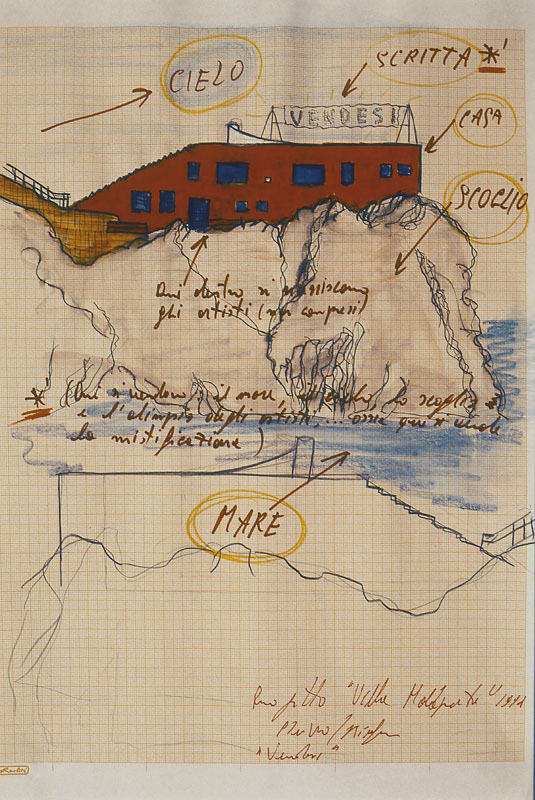 CIELO
SCRITTA *
VENDESI
CASA
SCOGLIO
Qui dentro si
gli artisti (non compresi)
* (Qui si vendono: il mare, il cielo, lo scoglio
e l'olimpo degli artisti, ... ossia qui si vende
la mistificazione)
MARE
Progetto "Villa Malaparte" 1991
"Vendesi"